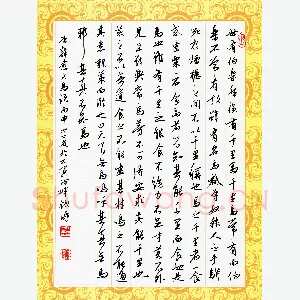 世有伯乐然後有千里马千里马常有而伯
乐不常有故虽有名马祇辱於奴隶人之手骈
死於槽枥之间不以千里称也马之千里者一食
或尽粟一石食马者不知其能千里而食也是
马也虽有千里之能食不饱力不足才美不外
见且欲与常马等不可得安求其能千里也
策之不以其道食之不能尽其材鸣之不能通
其意执策而临之曰天下无马呜呼其真无马
邪其真不知马也
唐韩愈之马说丙申
Shufawang.CN